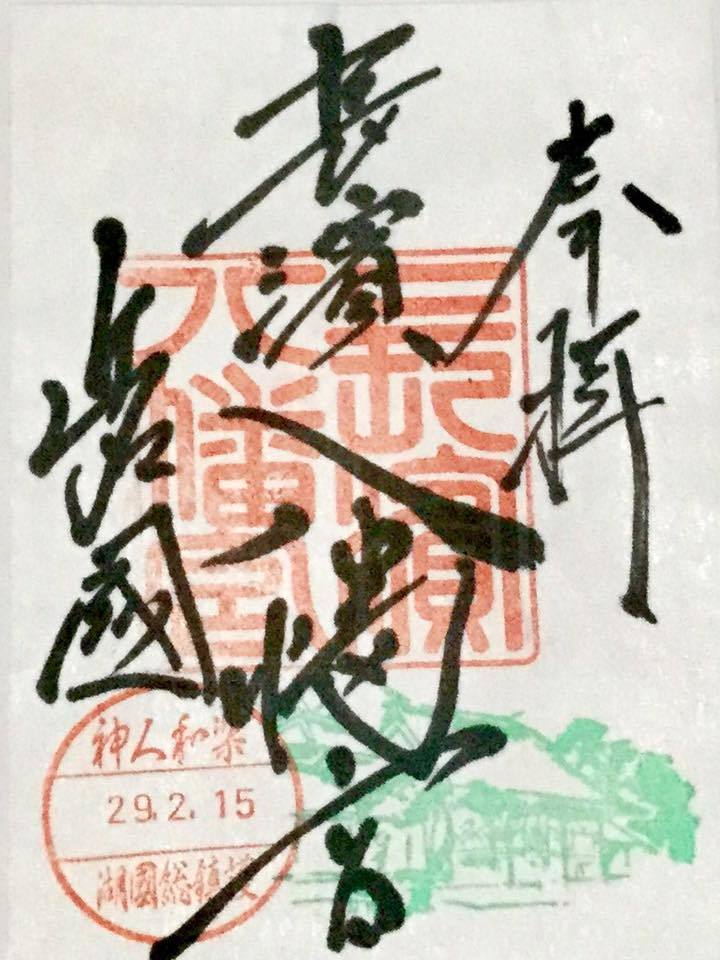 奉拝
長濱八幡宮
國
長濱
八幡宮
神人和楽
29.2.15
湖國総鎮護